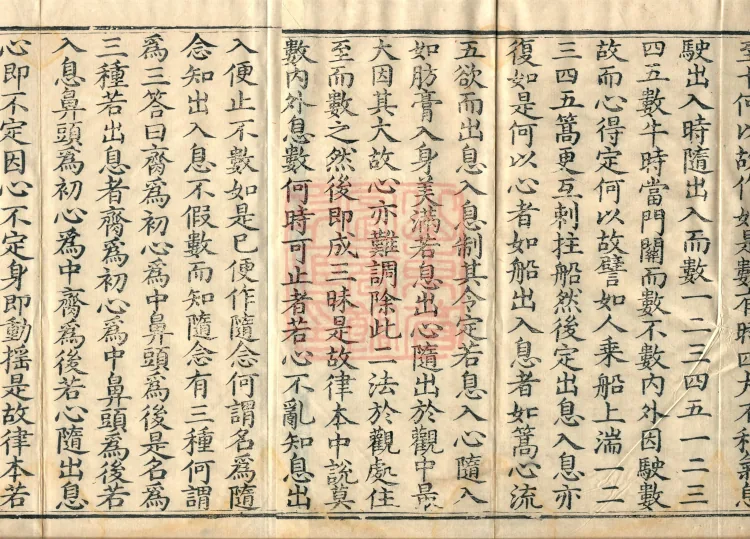 駛出入時隨出入而數一二三四五一二三
四五數牛時當門闌而數不數內外因駛數
故而心得定何以故譬如人乘船上湍一二
三四五篙更互刺拄船然後定出息入息亦
復如是何以心者如船出入息者如篙心流
五欲而出息入息制其令定若息入心隨入
如肪膏入身美滿若息出心隨出於觀中最
大因其大故心亦難調除此二法於觀處住
至而數之然後即成三昧是故律本中說莫
數內外息數何時可止者若心不亂知息出
入便止不數如是已便作隨念何謂名為隨
念知出入息不假數而知隨念有三種何謂
為三答曰齊為初心為中鼻頭為後是名為
三種若出息者齊為初心為中鼻頭為後若
入息鼻頭為初心為中齊為後若心隨出息
心即不定因心不定身即動搖是故律本若